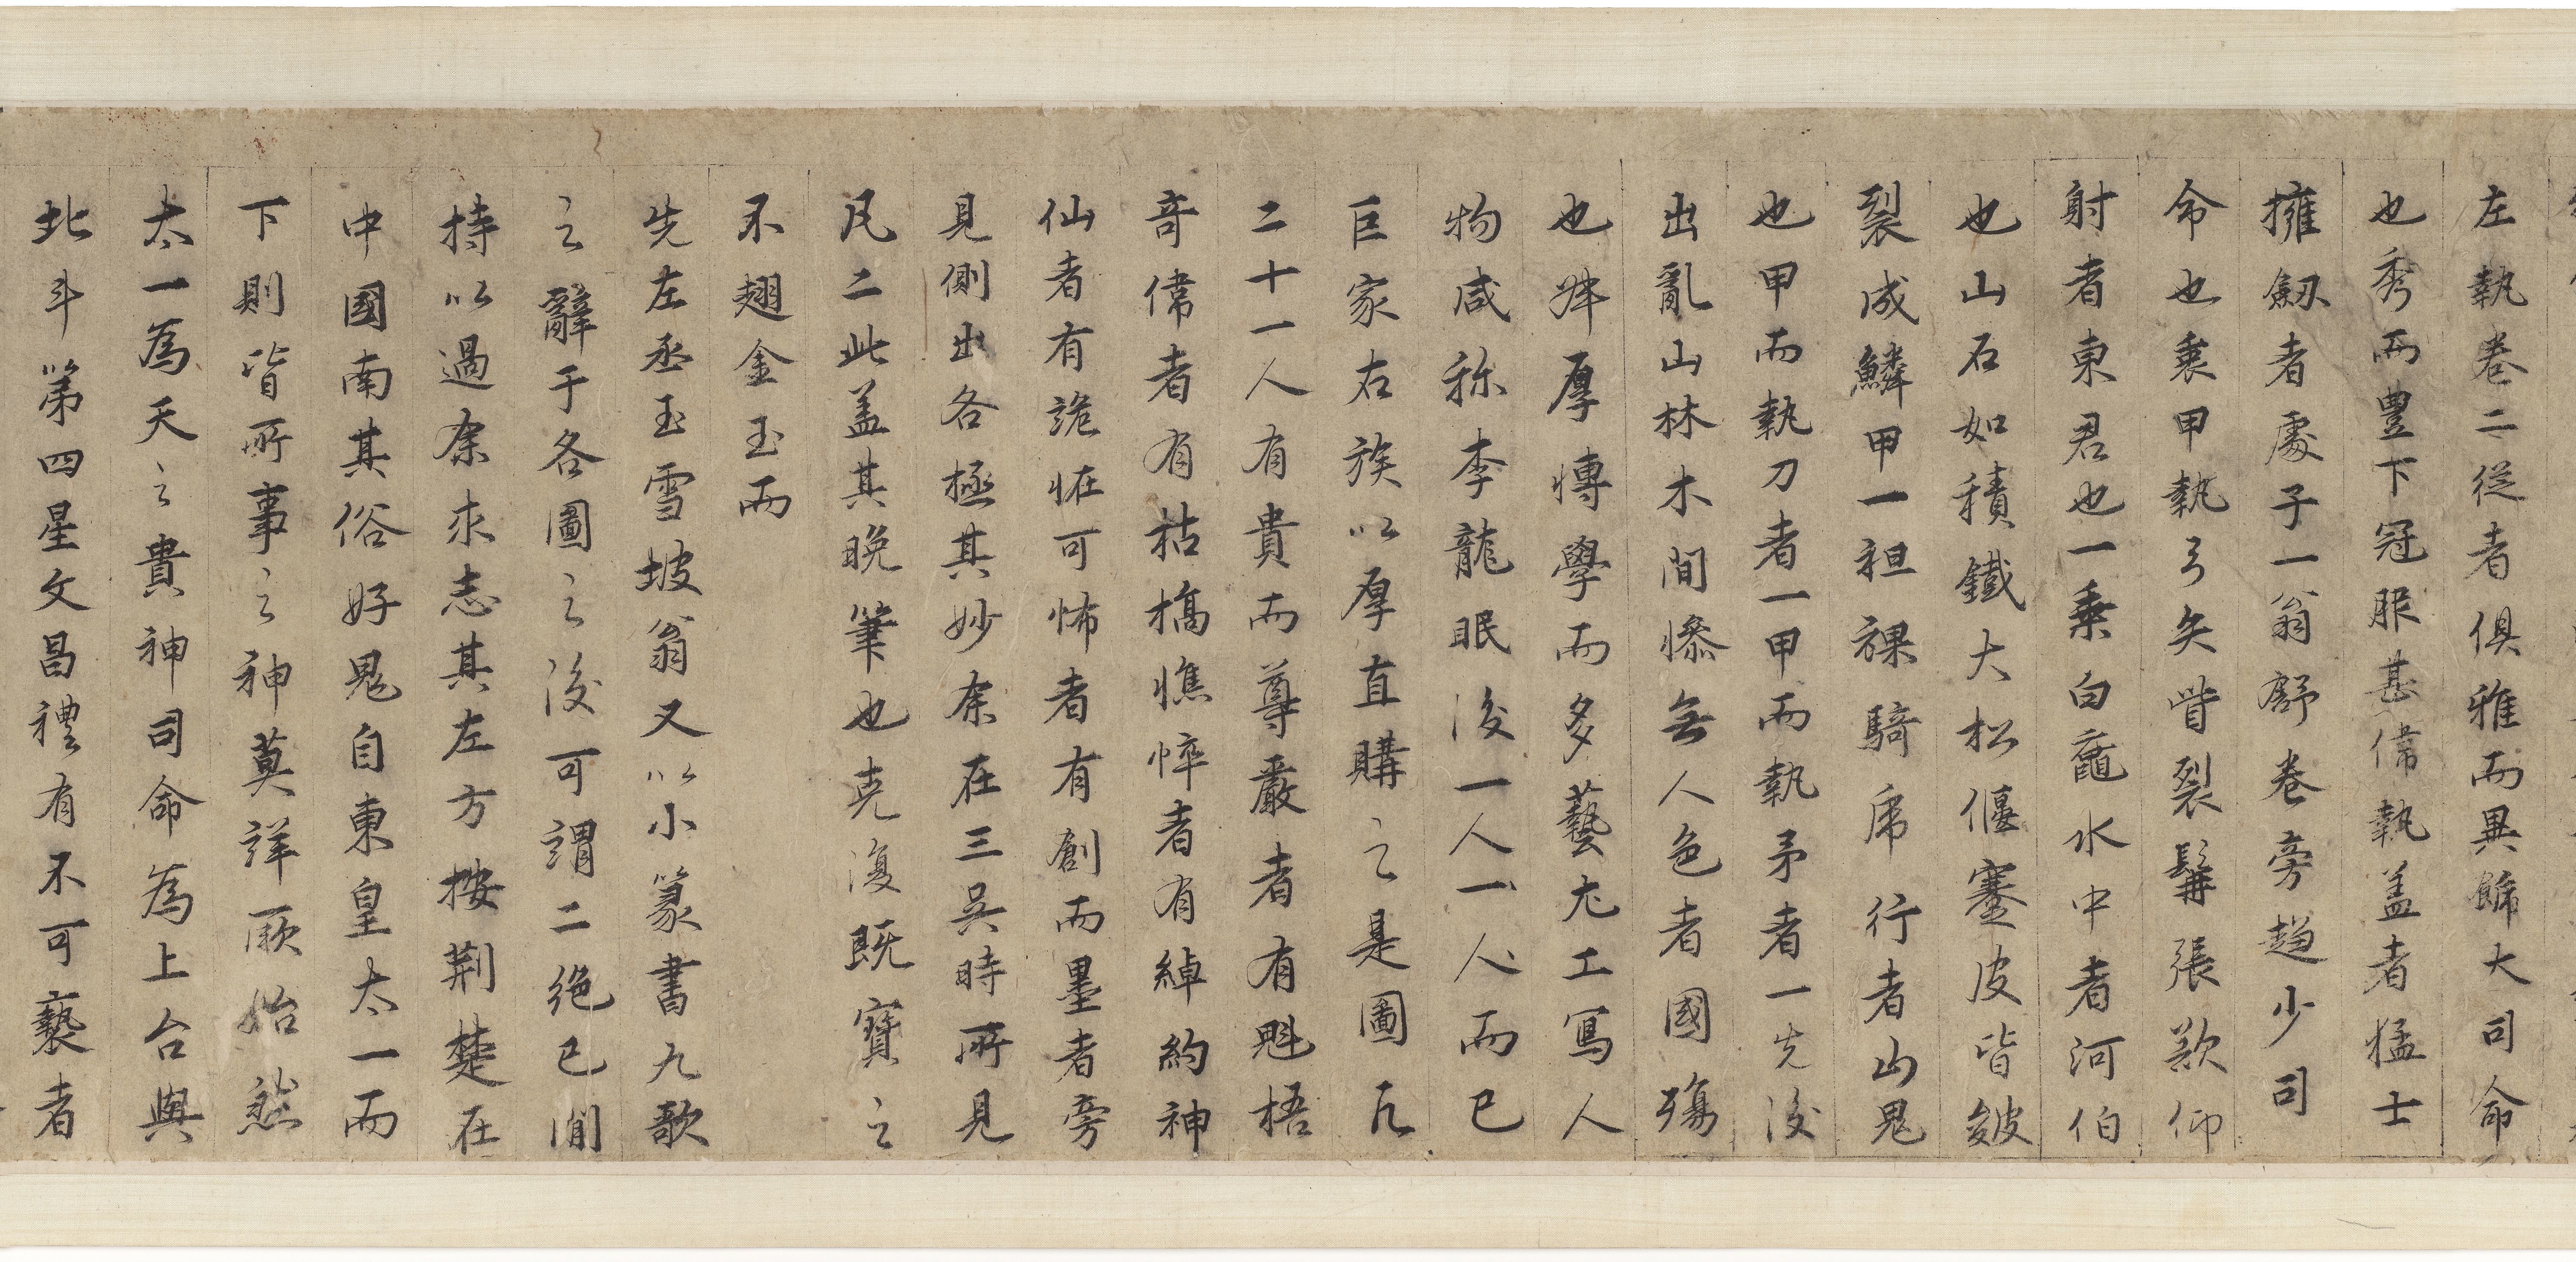 左執卷二從者俱雅而異餙大司命
也秀而豊下冠服甚偉執盖者猛士
擁劔者處子一翁舒卷旁趍少司
命也裹甲執弓矢眥裂髯張欻仰
射者東君也一乗白黿水中者河伯
也山石如積鐵大松偃蹇皮皆皴
裂成鱗甲一袒裸騎虎行者山鬼
也甲而執刀者一甲而執矛者一先後
出亂山林木間慘無人色者國殤
也舜厚愽學而多藝尤工寫人
物咸称李龍眠後一人一人而已
巨家右族以厚直購之是圖凢
二十一人有貴而尊嚴者有魁梧
竒偉者有枯槁憔悴者有綽約神
仙者有詭恠可怖者有創而墨者旁
見側出各極其妙余在三吴時所見
凡二此盖其晚筆也克復既寳之
不翅金玉而
先左丞玉雪坡翁又以小篆書九歌
之辭于各圖之後可謂二絶已間
持以過余求志其左方按荆楚在
中國南其俗好鬼自東皇太一而
下則皆所事之神莫詳厥始然
太一為天之貴神司命為上台與
北斗第四星文昌禮有不可褻者